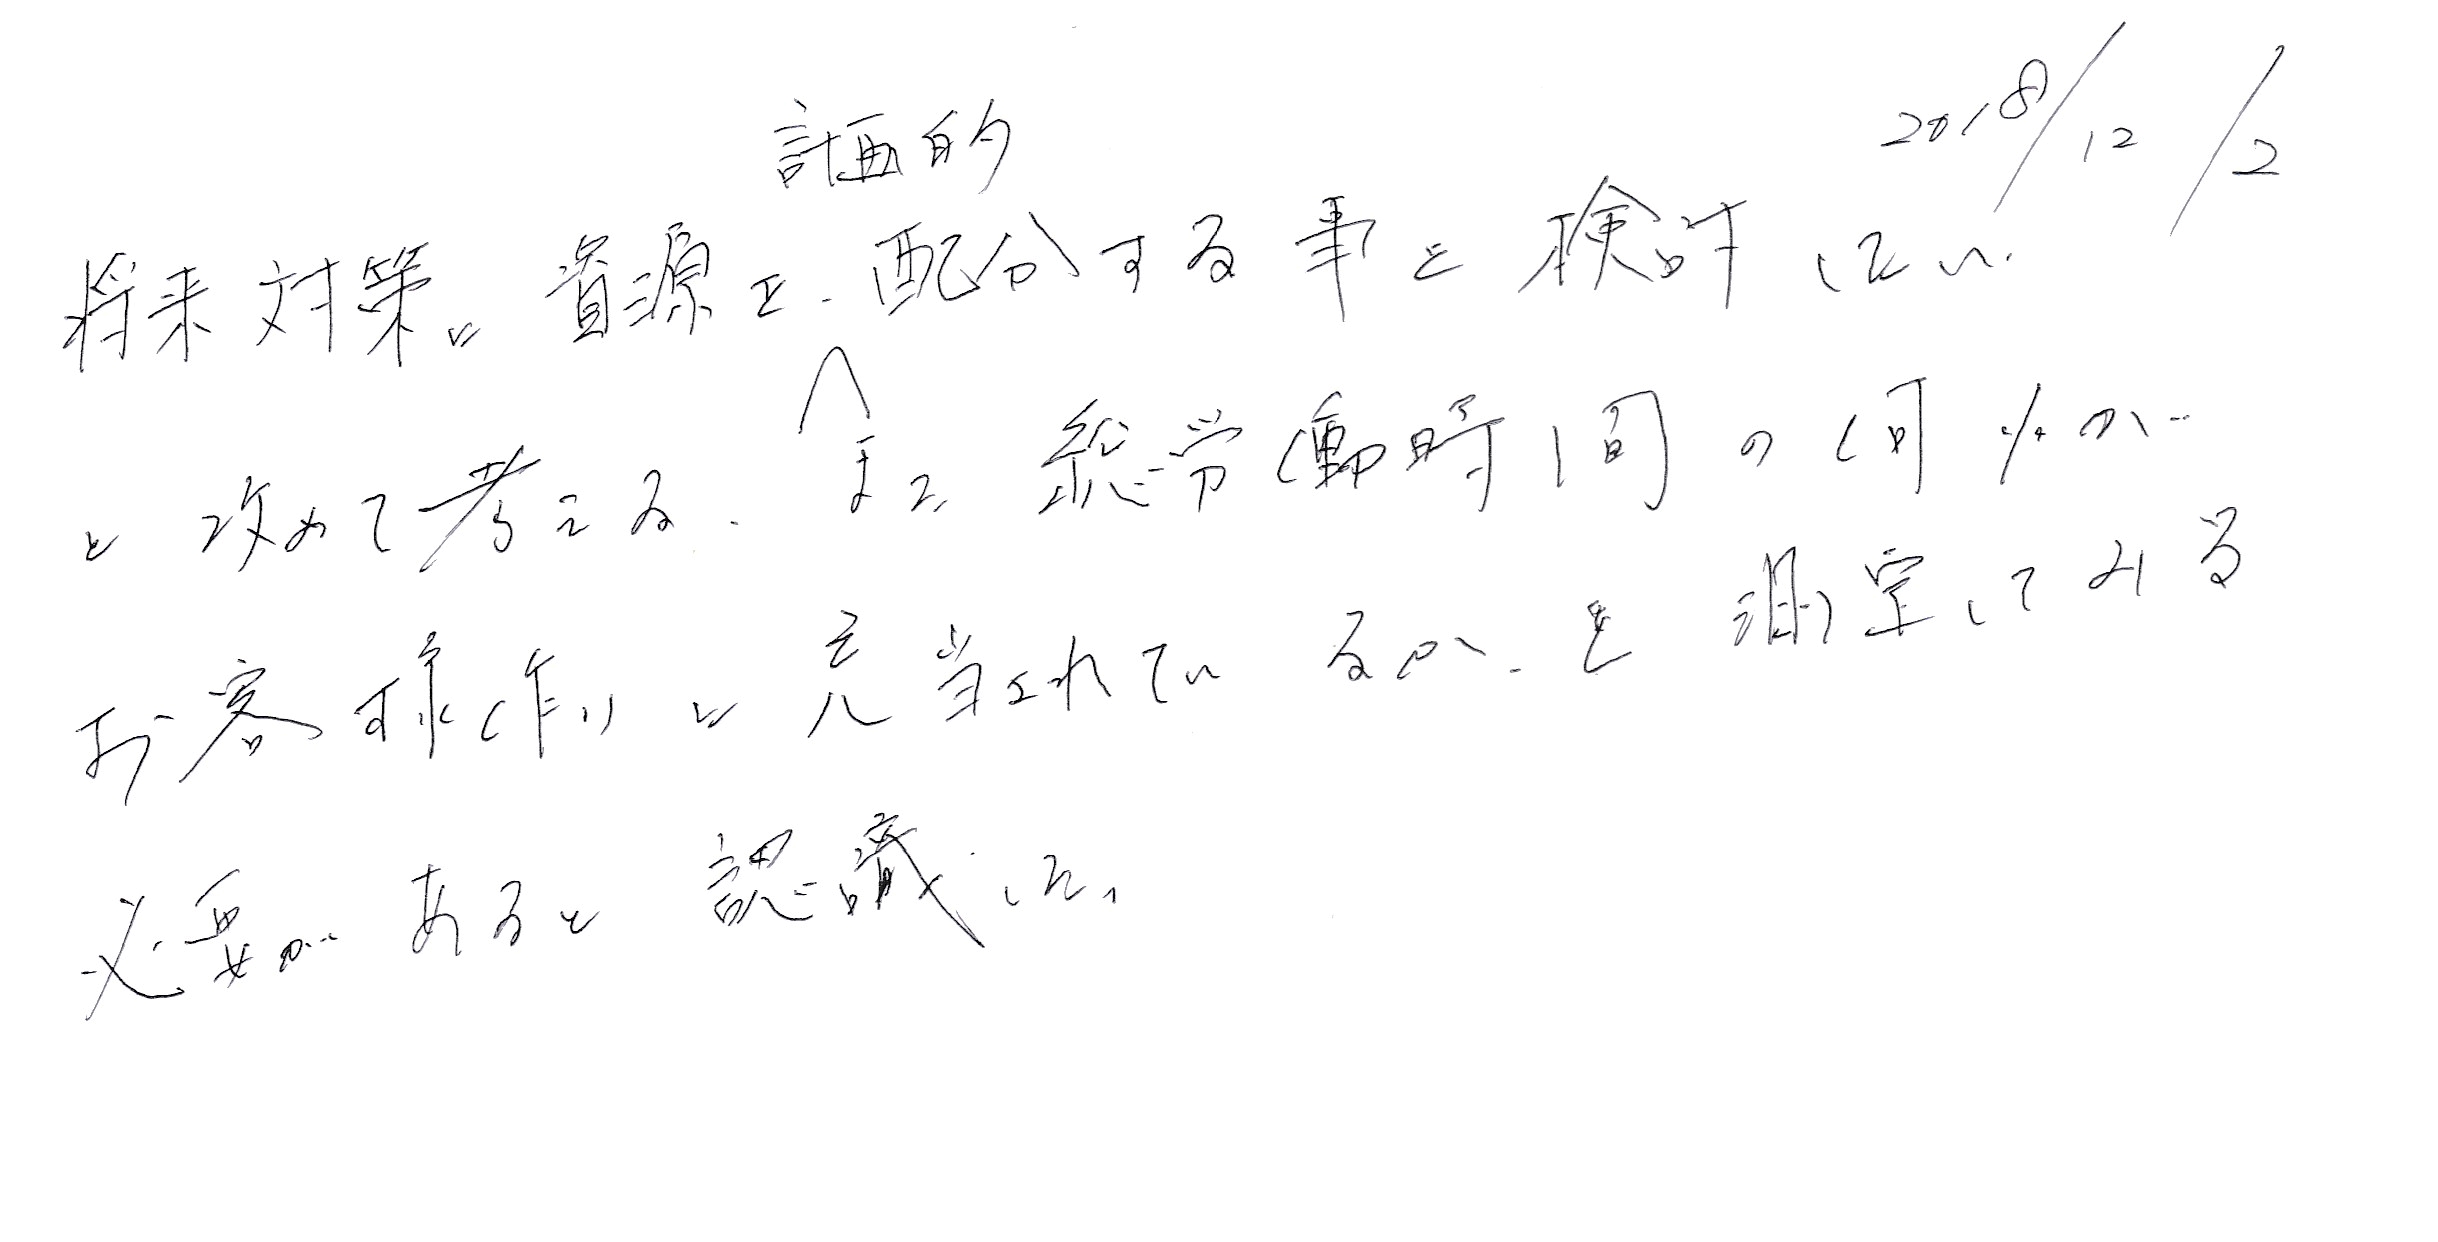 2018/12/2
計画的
将来対策に資源を、配分する事を検討したい、
と改めて考える、また総労働時間の何%が
お客様作りに充当されているか、を測定してみる
必要があると認識した、